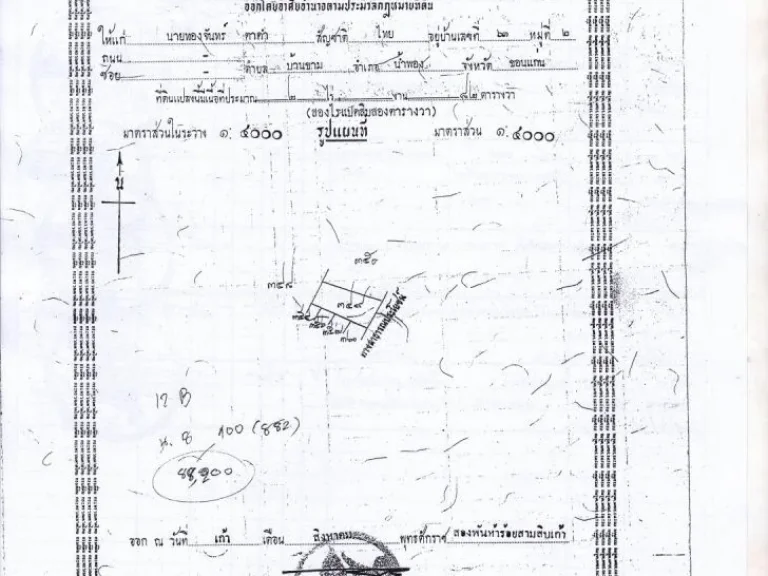 ออกโดยอาศัยอำนาจตามประมวลกฎหมายที่ดิน
ให้แก่ นายทองจันทร์ ตาดำ สัญชาติ ไทย อยู่บ้านเลขที่ ๒๓ หมู่ที่ ๒
ถนน - ตำบล บ้วนขาม อำเภอ น้ำพอง จังหวัด ขอนแกน
ซอย
ที่ดินแปลงนี้มีเนื้อที่ประมาณ ๒ ไร่ - งาน ๘๒ ตารางวา
(สองไร่แปดสิบสองตารางวา)
มาตราส่วนในระวาง ๑: ๕๐๐๐ รูปแผนที่ มาตราส่วน ๑: ๕๐๐๐
น
๓๕๐
๓๔๘
๓๔๙
ทางสาธารณประโยชน์
17 B
100 (882)
88,200
ออก ณ วันที่ เก้า เดือน สิงหาคม พุทธศักราช สองพันห้าร้อยสามสิบเก้า